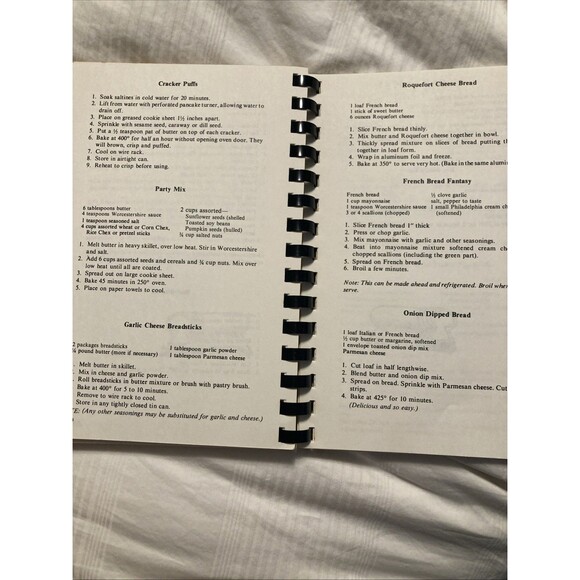 Cracker Puffs
1. Soak saltines in cold water for 20 minutes.
2. Lift from water with perforated pancake turner, allowing water to
drain off.
3. Place on greased cookie sheet 1½ inches apart.
4. Sprinkle with sesame seed, caraway or dill seed.
5. Put a ½ teaspoon pat of butter on top of each cracker.
6. Bake at 400° for half an hour without opening oven door. They
will brown, crisp and puffed.
7. Cool on wire rack.
8. Store in airtight can.
9. Reheat to crisp before using.
Party Mix
6 tablespoons butter
4 teaspoons Worcestershire sauce
1 teaspoon seasoned salt
4 cups assorted wheat or Corn Chex,
Rice Chex or pretzel sticks
2 cups assorted—
Sunflower seeds (shelled
Toasted soy beans
Pumpkin seeds (hulled)
¾ cup salted nuts
1. Melt butter in heavy skillet, over low heat. Stir in Worcestershire
and salt.
2. Add 6 cups assorted seeds and cereals and ¾ cup nuts. Mix over
low heat until all are coated.
3. Spread out on large cookie sheet.
4. Bake 45 minutes in 250° oven.
5. Place on paper towels to cool.
Garlic Cheese Breadsticks
2 packages breadsticks
pound butter (more if necessary)
1 tablespoon garlic powder
1 tablespoon Parmesan cheese
Melt butter in skillet.
Mix in cheese and garlic powder.
Roll breadsticks in butter mixture or brush with pastry brush.
Bake at 400° for 5 to 10 minutes.
Remove to wire rack to cool.
Store in any tightly closed tin can.
(Any other seasonings may be substituted for garlic and cheese.)
Roquefort Cheese Bread
1 loaf French bread
1 stick of sweet butter
6 ounces Roquefort cheese
1. Slice French bread thinly.
2. Mix butter and Roquefort cheese together in bowl.
3. Thickly spread mixture on slices of bread putting th
together in loaf form.
4. Wrap in aluminum foil and freeze.
5. Bake at 350° to serve very hot. (Bake in the same alumin
French Bread Fantasy
French bread
1 cup mayonnaise
1 teaspoon Worcestershire sauce
3 or 4 scallions (chopped)
½ clove garlic
salt, pepper to taste
1 small Philadelphia cream ch
(softened)
1. Slice French bread 1" thick
2. Press or chop garlic.
3. Mix mayonnaise with garlic and other seasonings.
4. Beat into mayonnaise mixture softened cream che
chopped scallions (including the green part).
5. Spread on French bread.
6. Broil a few minutes.
Note: This can be made ahead and refrigerated. Broil when
serve.
Onion Dipped Bread
1 loaf Italian or French bread
½ cup butter or margarine, softened
1 envelope toasted onion dip mix
Parmesan cheese
1. Cut loaf in half lengthwise.
2. Blend butter and onion dip mix.
3. Spread on bread. Sprinkle with Parmesan cheese. Cut
strips.
4. Bake at 425° for 10 minutes.
(Delicious and so easy.)